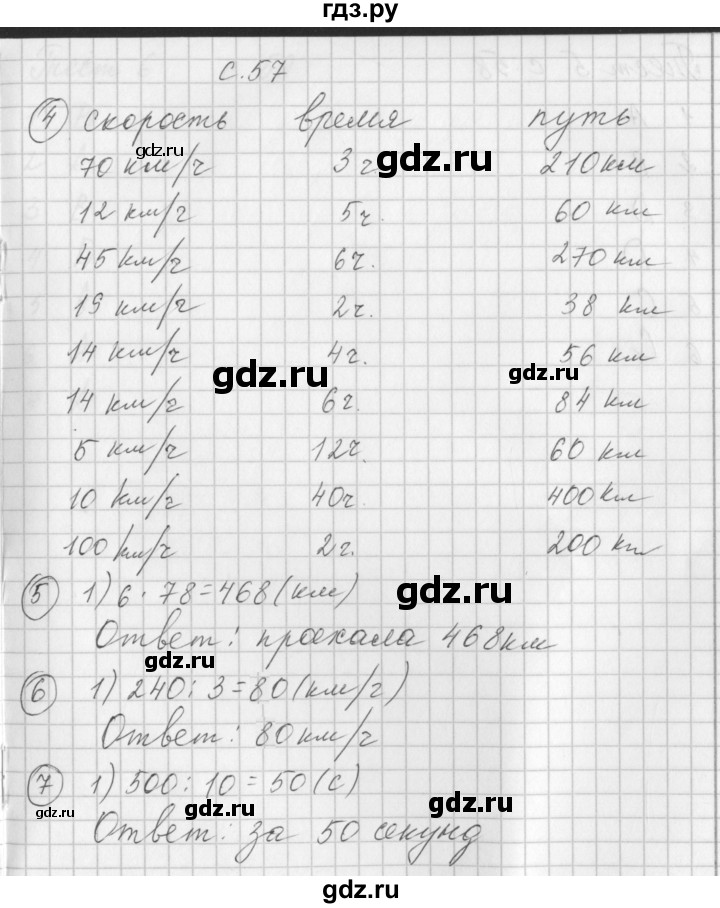 гдз.ру
с. 57
4 скорость время путь
70 км/ч 3 ч 210 км
12 км/ч 5 ч. 60 км
45 км/ч 6 ч. 270 км
19 км/ч 2 ч. 38 км
14 км/ч 4 ч. 56 км
14 км/ч 6 ч. 84 км
5 км/ч 12 ч. 60 км
10 км/ч 40 ч. 400 км
100 км/ч 2 ч. 200 км
5 1) 6 · 78 = 468 (км)
Ответ: проехала 468 км
6 1) 240 : 3 = 80 (км/ч)
Ответ: 80 км/ч
7 1) 500 : 10 = 50 (с)
Ответ: за 50 секунд
gdz.ru
gdz.ru
gdz.ru
gdz.ru
gdz.ru
gdz.ru
gdz.ru
gdz.ru
gdz.ru
gdz.ru